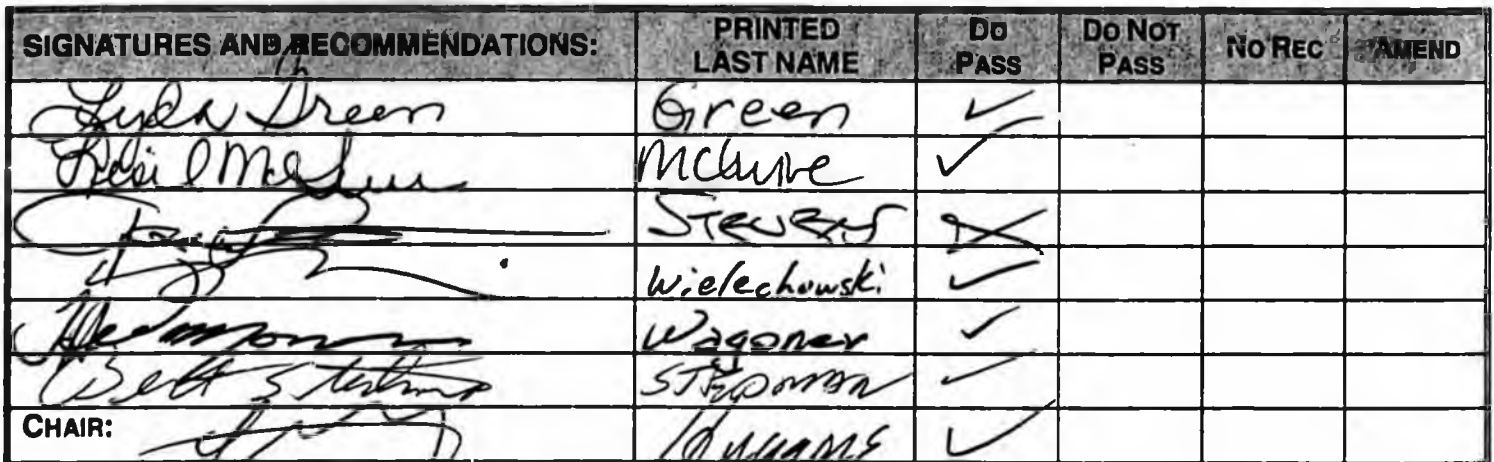 SIGNATURES AND RECOMMENDATIONS: PRINTED LAST NAME DO PASS DO NOT PASS NO REC AMEND
Lyda Green Green ✓
Lesil McGuire McGuire ✓
Stevens X
Wielechowski ✓
Wagoner ✓
Bert Stedman STEDMAN ✓
CHAIR: ✓